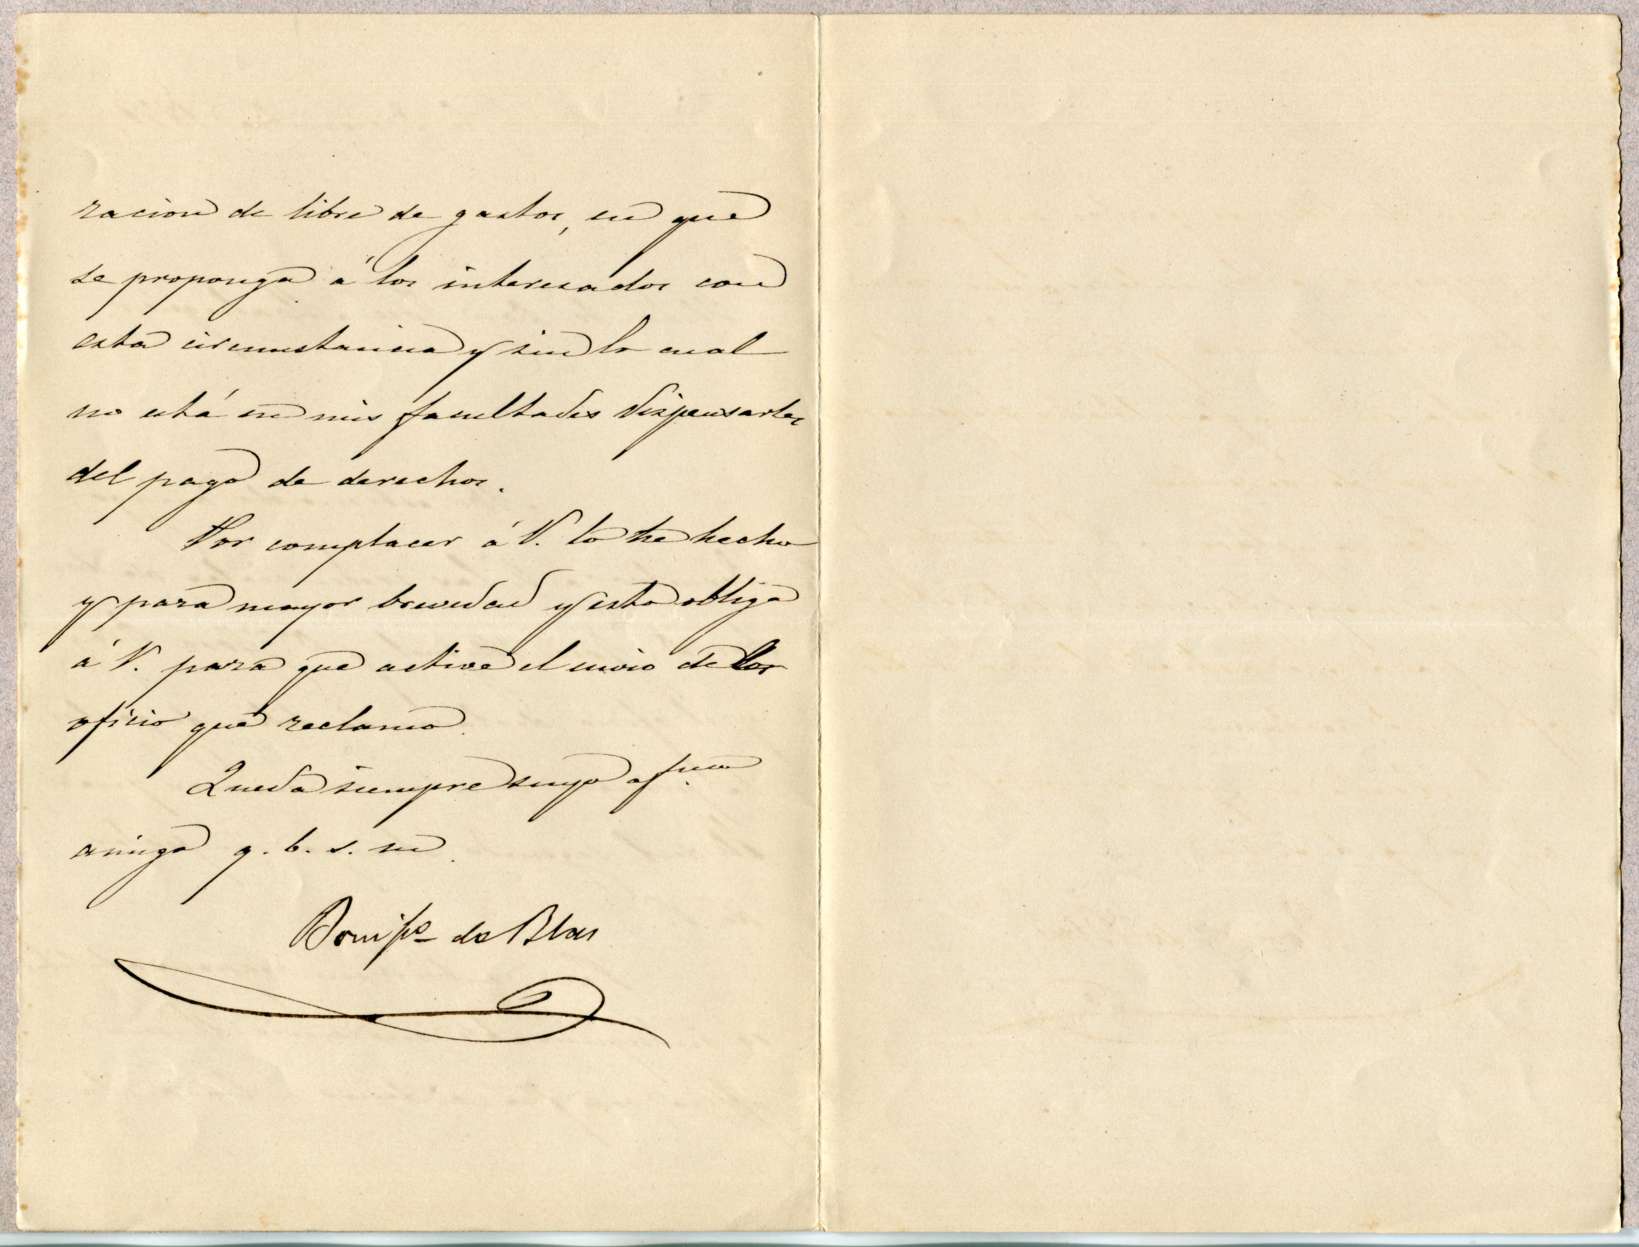 racion de libre de gastos, en que
se proponga á los interesados con
esta circunstancia y sin lo cual
no está en mis facultades dispensarles
del pago de derechos.
Por complacer á V. lo he hecho
y para mayor brevedad y esto obliga
á V. para que active el envio de los
oficio que reclamo.
Queda siempre suyo afmo.
amigo q. b. s. m.
Bonifo de Blas